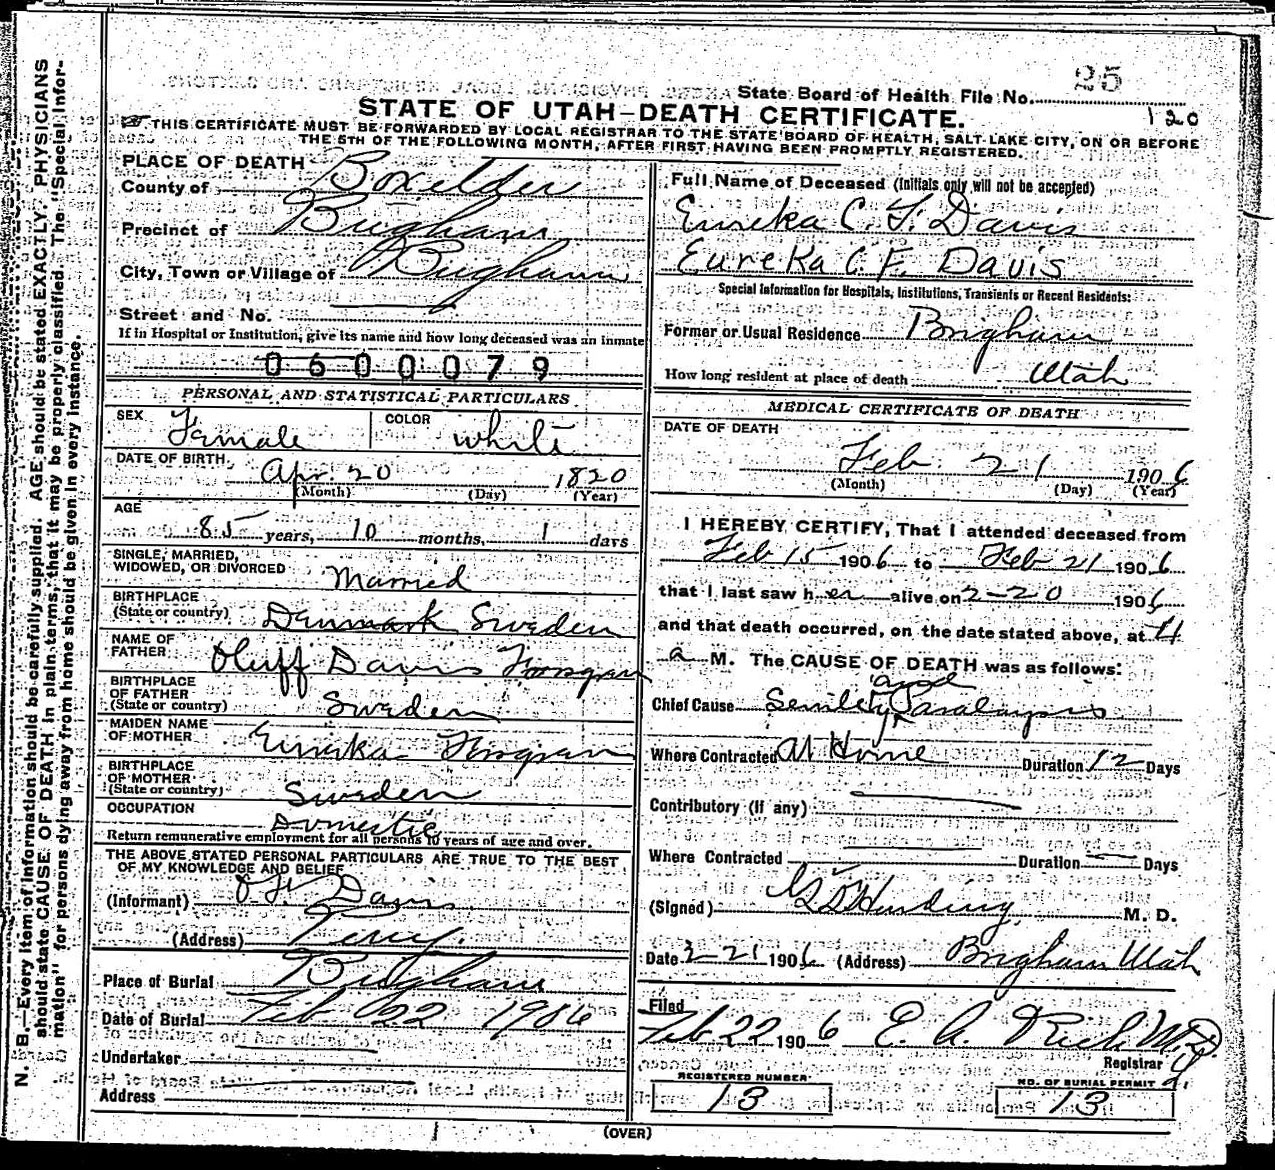 25
State Board of Health File No.
STATE OF UTAH—DEATH CERTIFICATE.
120
THIS CERTIFICATE MUST BE FORWARDED BY LOCAL REGISTRAR TO THE STATE BOARD OF HEALTH, SALT LAKE CITY, ON OR BEFORE
THE 5TH OF THE FOLLOWING MONTH, AFTER FIRST HAVING BEEN PROMPTLY REGISTERED.
N. B.—Every item of information should be carefully supplied. AGE should be stated EXACTLY. PHYSICIANS
should state CAUSE OF DEATH in plain terms, that it may be properly classified. The "Special Infor-
mation" for persons dying away from home should be given in every instance.
PLACE OF DEATH
County of Boxelder
Precinct of Brigham
City, Town or Village of Brigham
Street and No.
If in Hospital or Institution, give its name and how long deceased was an inmate
0600079
PERSONAL AND STATISTICAL PARTICULARS
SEX Female COLOR White
DATE OF BIRTH Apr. 20 1820
(Month) (Day) (Year)
AGE
85 years, 10 months, 1 days
SINGLE, MARRIED,
WIDOWED, OR DIVORCED Married
BIRTHPLACE
(State or country) Denmark Sweden
NAME OF
FATHER Oluff Davis
BIRTHPLACE
OF FATHER
(State or country) Sweden
MAIDEN NAME
OF MOTHER Eureka
BIRTHPLACE
OF MOTHER
(State or country) Sweden
OCCUPATION Domestic
Return remunerative employment for all persons 10 years of age and over.
THE ABOVE STATED PERSONAL PARTICULARS ARE TRUE TO THE BEST
OF MY KNOWLEDGE AND BELIEF
(Informant) Davis
(Address) Perry.
Place of Burial Brigham
Date of Burial Feb 22 1906
Undertaker
Address
Full Name of Deceased (Initials only will not be accepted)
Eureka C. F. Davis
Eureka C. F. Davis
Special Information for Hospitals, Institutions, Transients or Recent Residents:
Former or Usual Residence Brigham
How long resident at place of death Utah
MEDICAL CERTIFICATE OF DEATH
DATE OF DEATH
Feb. 21 1906
(Month) (Day) (Year)
I HEREBY CERTIFY, That I attended deceased from
Feb 15 1906 to Feb 21 1906
that I last saw her alive on 2-20 1906
and that death occurred, on the date stated above, at
a M. The CAUSE OF DEATH was as follows:
Chief Cause Senility and Paralaysis
Where Contracted At Home Duration 12 Days
Contributory (if any)
Where Contracted Duration Days
(Signed) Harding M. D.
Date 2 21 1906 (Address) Brigham Utah
Filed
Feb 22 1906 E. A. Rich M.D.
Registrar
REGISTERED NUMBER
13
NO. OF BURIAL PERMIT
13
(OVER)